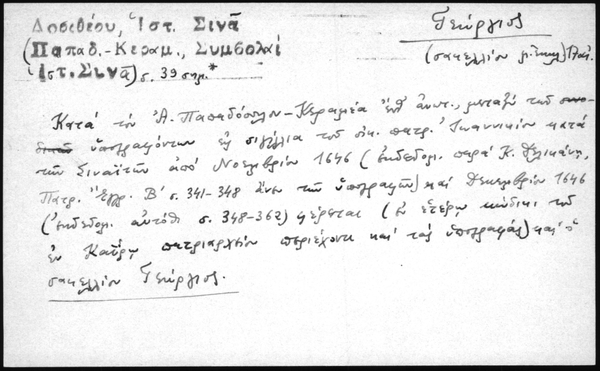 Δοσιθέου, Ἱστ. Σινᾶ
(Παπαδ.-Κεραμ., Συμβολαὶ
Ἱστ. Σινᾶ) σ. 39 σημ.*
Γεώργιος
(σακελλίου
Κατὰ τὸν Ἀ. Παπαδόπουλον-Κεραμέα ἔνθ' ἀνωτ., μεταξὺ τῶν συνο-
δικῶν ὑπογραφόντων ἐν σιγίλλια τοῦ οἰκ. πατρ. Ἰωαννικίου κατὰ
τῶν Σιναϊτῶν ἀπὸ Νοεμβρίου 1646 (ἐκδεδομ. παρὰ Κ. Δελικάνη,
Πατρ. Ἔγγρ. Β' σ. 341-348 ἄνευ τῶν ὑπογραφῶν) καὶ Δεκεμβρίου 1646
(ἐκδεδομ. αὐτόθι σ. 348-362) φέρεται (ἐν ἑτέρῳ κώδικι τοῦ
ἐν Καΐρῳ πατριαρχείου περιέχοντι καὶ τὰς ὑπογραφάς) καὶ ὁ
σακελλίου Γεώργιος.